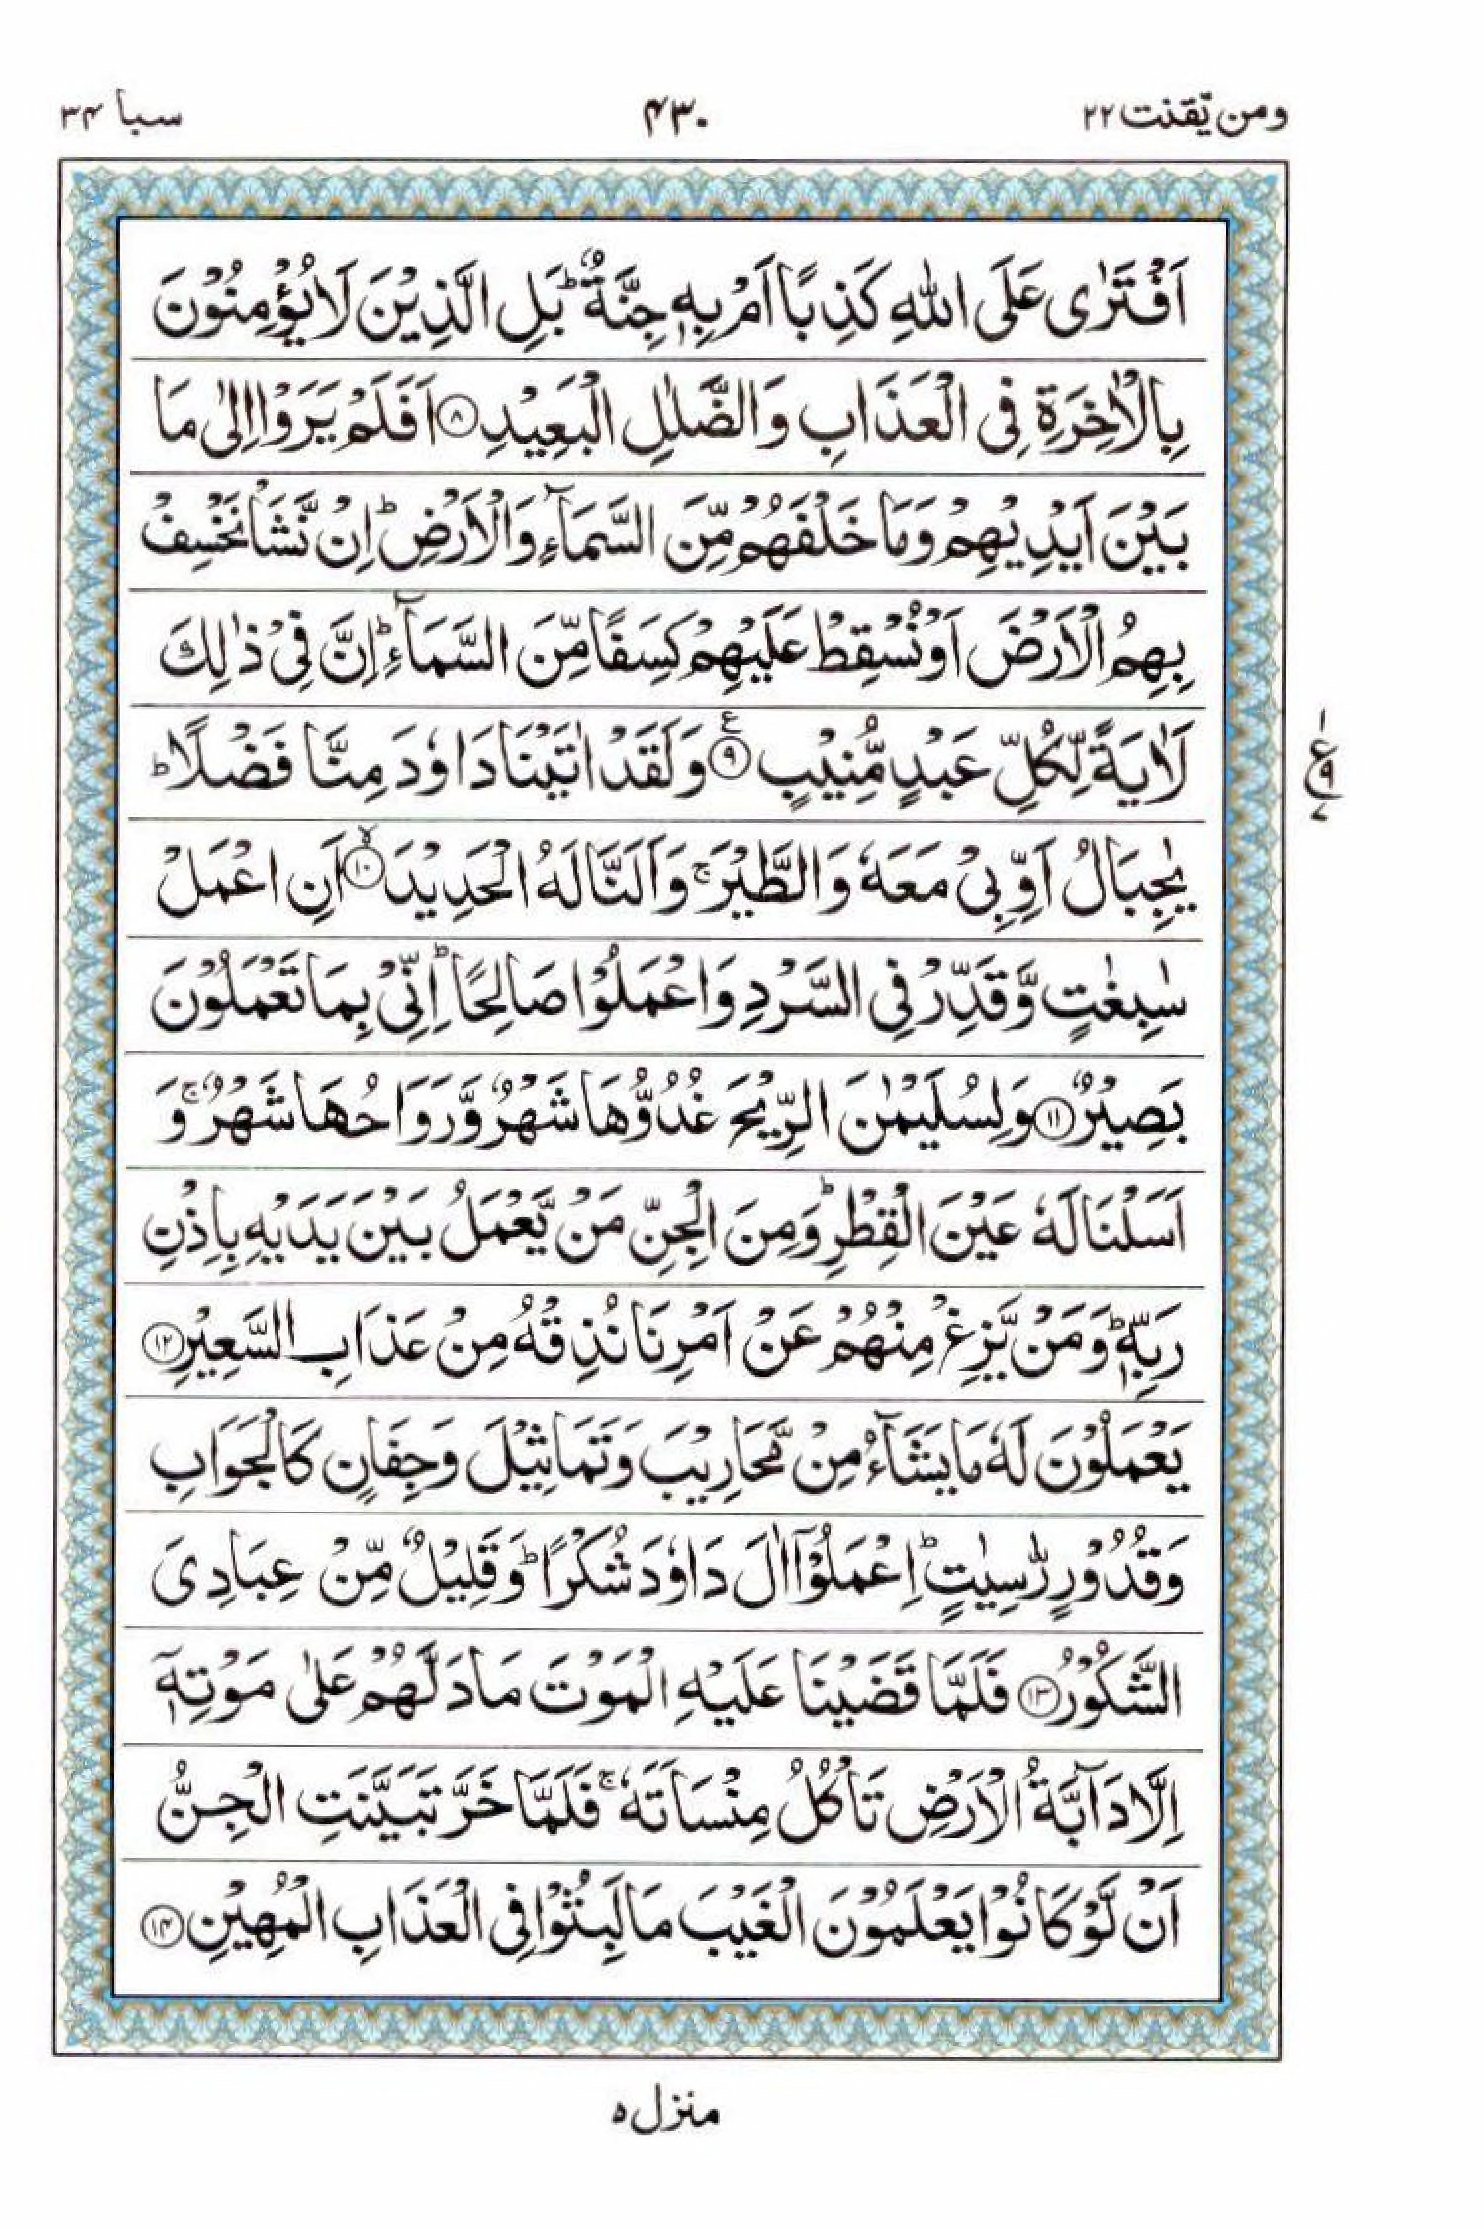 ومن يّقنت ٢٢
٤٣٠
سبا ٣٤
اَفْتَرٰى عَلَى اللّٰهِ كَذِبًا اَمْ بِهٖ جِنَّةٌ ؕ بَلِ الَّذِيْنَ لَا يُؤْمِنُوْنَ
بِالْاٰخِرَةِ فِى الْعَذَابِ وَالضَّلٰلِ الْبَعِيْدِ ۝٨ اَفَلَمْ يَرَوْا اِلٰى مَا
بَيْنَ اَيْدِيْهِمْ وَمَا خَلْفَهُمْ مِّنَ السَّمَآءِ وَالْاَرْضِ ؕ اِنْ نَّشَاْ نَخْسِفْ
بِهِمُ الْاَرْضَ اَوْ نُسْقِطْ عَلَيْهِمْ كِسَفًا مِّنَ السَّمَآءِ ؕ اِنَّ فِيْ ذٰلِكَ
لَاٰيَةً لِّكُلِّ عَبْدٍ مُّنِيْبٍ ۝٩ ع وَلَقَدْ اٰتَيْنَا دَاوٗدَ مِنَّا فَضْلًا ؕ
ع ١ ٩ ٧
يٰجِبَالُ اَوِّبِيْ مَعَهٗ وَالطَّيْرَ ۚ وَاَلَنَّا لَهُ الْحَدِيْدَ ۝١٠ ۙ اَنِ اعْمَلْ
سٰبِغٰتٍ وَّقَدِّرْ فِى السَّرْدِ وَاعْمَلُوْا صَالِحًا ؕ اِنِّيْ بِمَا تَعْمَلُوْنَ
بَصِيْرٌ ۝١١ وَلِسُلَيْمٰنَ الرِّيْحَ غُدُوُّهَا شَهْرٌ وَّرَوَاحُهَا شَهْرٌ ۚ وَ
اَسَلْنَا لَهٗ عَيْنَ الْقِطْرِ ؕ وَمِنَ الْجِنِّ مَنْ يَّعْمَلُ بَيْنَ يَدَيْهِ بِاِذْنِ
رَبِّهٖ ؕ وَمَنْ يَّزِغْ مِنْهُمْ عَنْ اَمْرِنَا نُذِقْهُ مِنْ عَذَابِ السَّعِيْرِ ۝١٢
يَعْمَلُوْنَ لَهٗ مَا يَشَآءُ مِنْ مَّحَارِيْبَ وَتَمَاثِيْلَ وَجِفَانٍ كَالْجَوَابِ
وَقُدُوْرٍ رّٰسِيٰتٍ ؕ اِعْمَلُوْٓا اٰلَ دَاوٗدَ شُكْرًا ؕ وَقَلِيْلٌ مِّنْ عِبَادِيَ
الشَّكُوْرُ ۝١٣ فَلَمَّا قَضَيْنَا عَلَيْهِ الْمَوْتَ مَا دَلَّهُمْ عَلٰى مَوْتِهٖٓ
اِلَّا دَآبَّةُ الْاَرْضِ تَاْكُلُ مِنْسَاَتَهٗ ۚ فَلَمَّا خَرَّ تَبَيَّنَتِ الْجِنُّ
اَنْ لَّوْ كَانُوْا يَعْلَمُوْنَ الْغَيْبَ مَا لَبِثُوْا فِى الْعَذَابِ الْمُهِيْنِ ۝١٤
منزل ٥